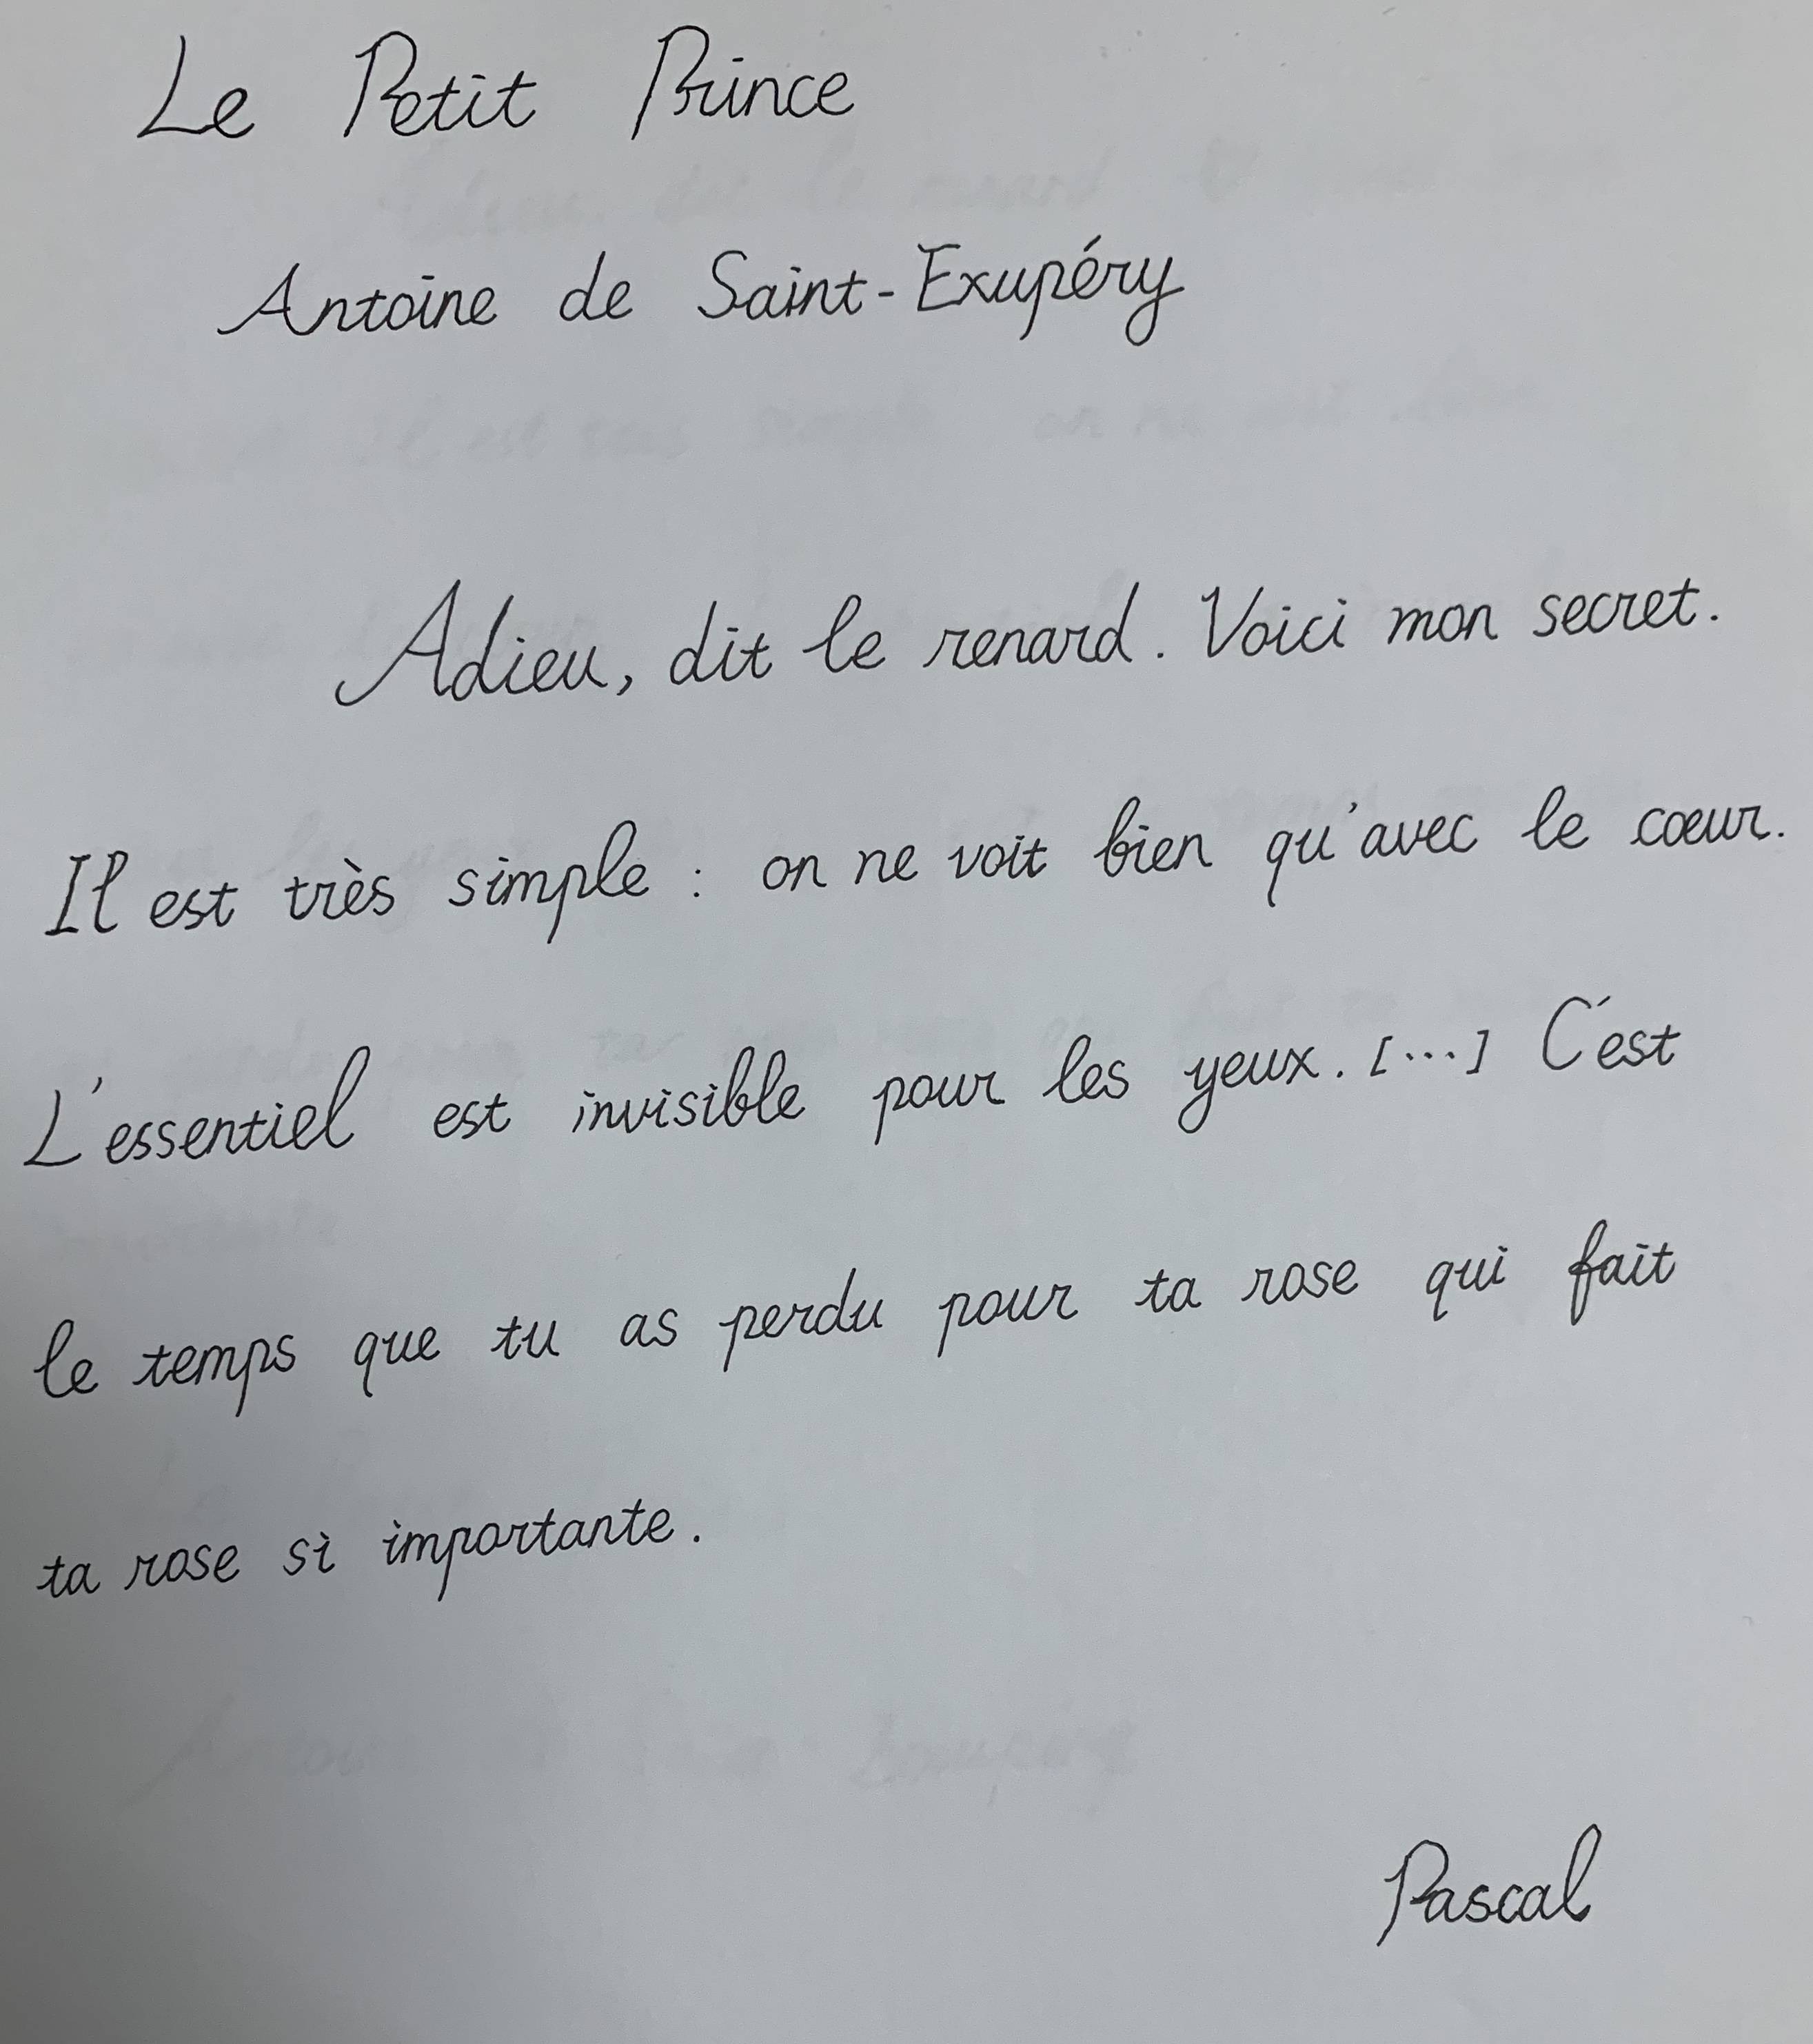 Le Petit Prince
Antoine de Saint-Exupéry
Adieu, dit le renard. Voici mon secret.
Il est très simple : on ne voit bien qu'avec le cœur.
L'essentiel est invisible pour les yeux. [...] C'est
le temps que tu as perdu pour ta rose qui fait
ta rose si importante.
Pascal